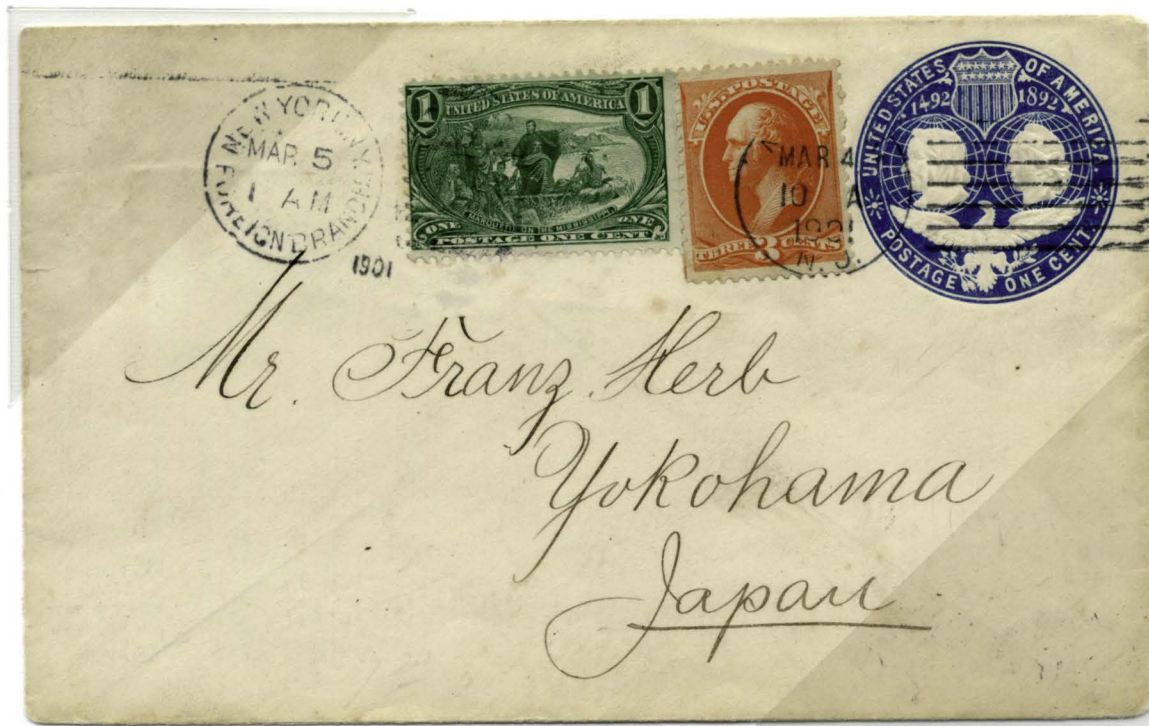 NEW YORK, N.Y.
MAR 5
1 AM
FOREIGN BRANCH
1901
1 UNITED STATES OF AMERICA 1
MARQUETTE ON THE MISSISSIPPI
ONE ONE
POSTAGE ONE CENT
U.S. POSTAGE
THREE 3 CENTS
MAR 4
10 A
N. J.
UNITED STATES OF AMERICA
1492 1892
POSTAGE ONE CENT.
Mr. Franz Herb
Yokohama
Japan